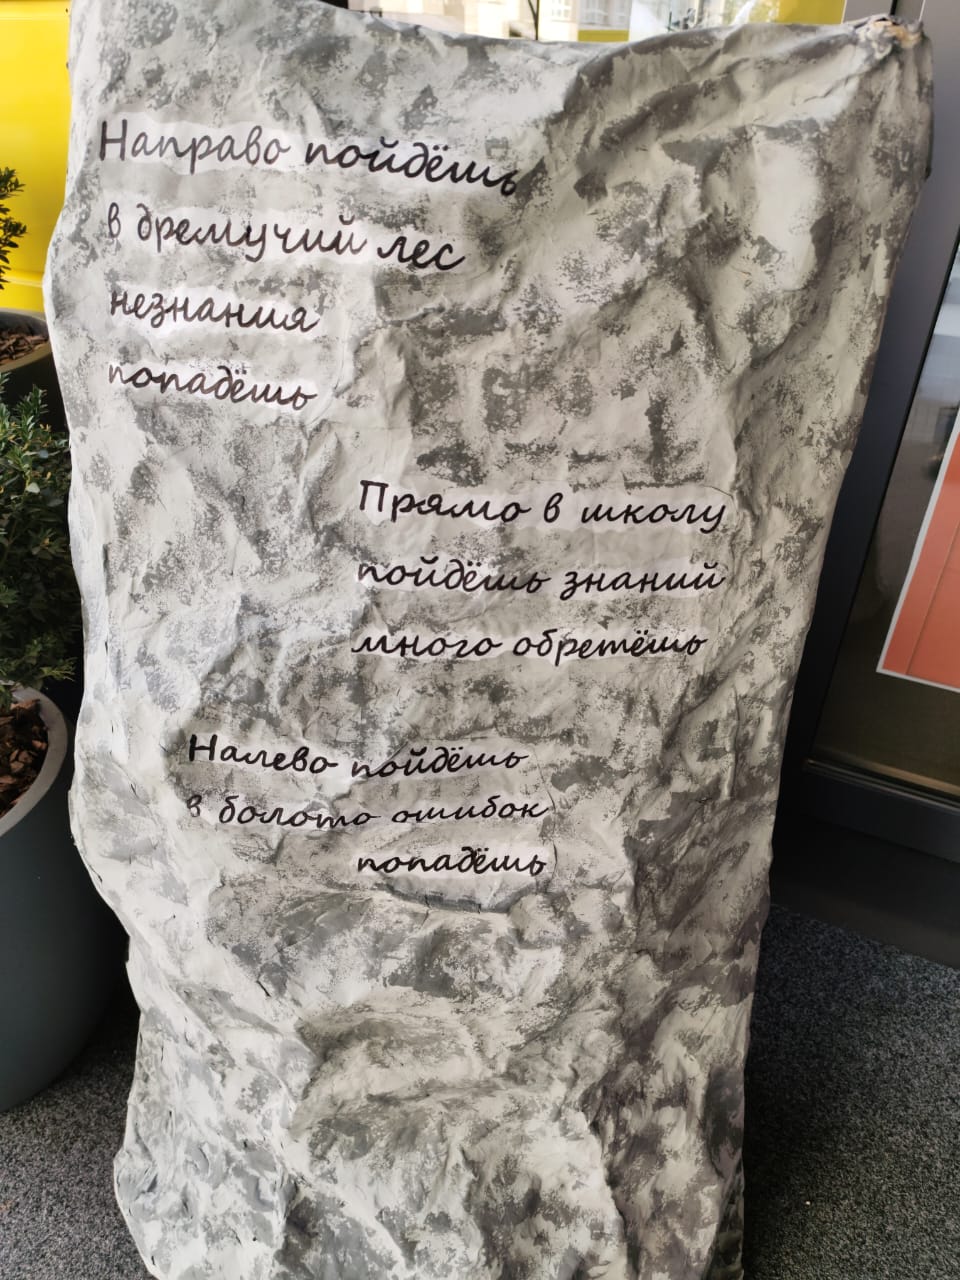 Направо пойдёшь
в дремучий лес
незнания
попадёшь
Прямо в школу
пойдёшь знаний
много обретёшь
Налево пойдёшь
в болото ошибок
попадёшь